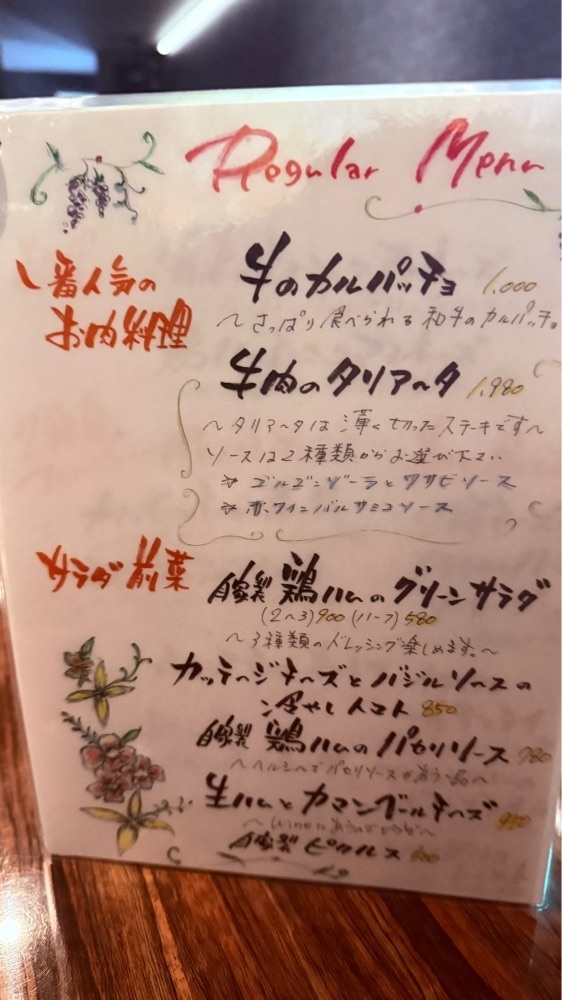 Regular Menu
一番人気の
お肉料理
牛のカルパッチョ 1.000
〜さっぱり食べられる和牛のカルパッチョ
牛肉のタリアータ 1.980
〜タリアータは薄く切ったステーキです〜
ソースは2種類からお選び下さい
☆ ゴルゴンゾーラとワサビソース
☆ 赤ワインバルサミコソース
サラダ 前菜
自家製 鶏ハムのグリーンサラダ
(2〜3)900 (ハーフ)580
〜3種類のドレッシング楽しめます。〜
カッテージチーズとバジルソースの
冷やしトマト 850
自家製 鶏ハムのパセリソース 780
〜ヘルシーでパセリソースが
生ハムとカマンベールチーズ
自家製 ピクルス